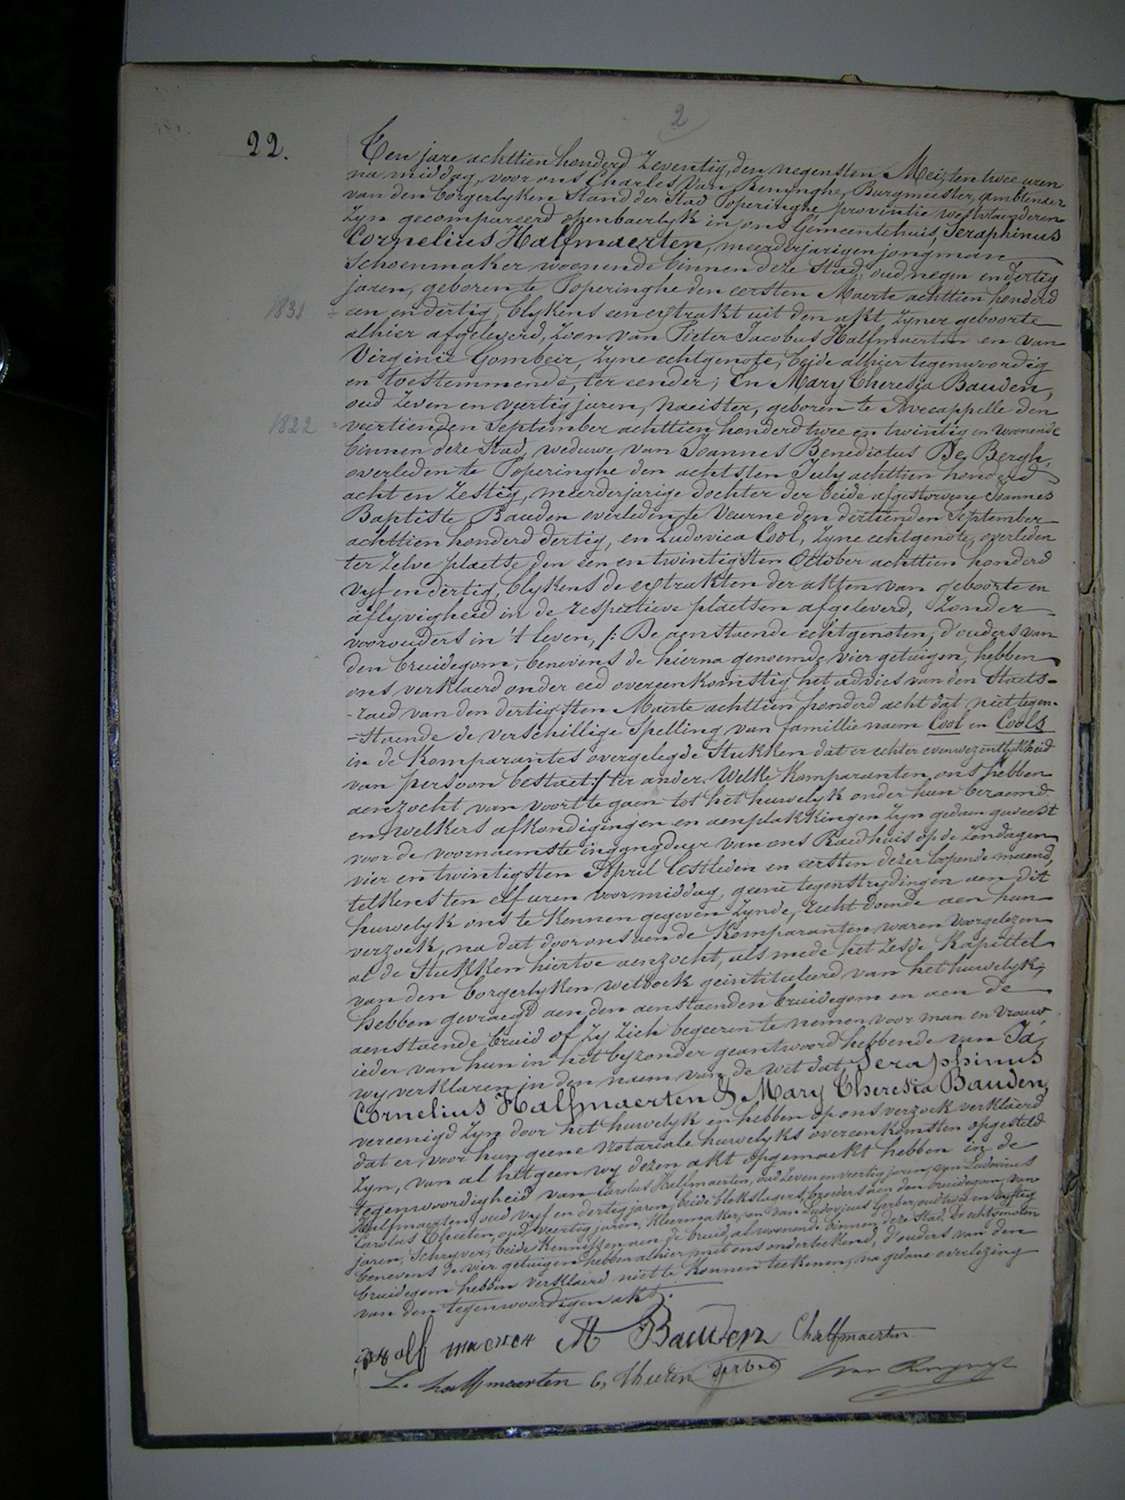 2
22.
Ten jare achttien honderd Zeventig, den negensten Mei, ten twee uren
na middag, voor ons Charles Van Renynghe, Burgmeester, ambtenaer
van den borgerlyken Stand der Stad Poperinghe provintie westvlaenderen
Zyn gecompareerd openbaerlyk in ons Gemeentehuis, Seraphinus
Cornelius Halfmaerten, meerderjarigen jongman
Schoenmaker woonende binnen deze Stad, oud negen en dertig
jaren, geboren te Poperinghe den eersten Maerte achttien honderd
1831 een en dertig, blykens een extrakt uit den akt zyner geboorte
alhier afgeleverd, Zoon van Pieter Jacobus Halfmaerten en van
Virginie Gombeir, Zyne echtgenote, beide alhier tegenwoordig
en toestemmende, ter eender; En Mary Theresia Bauden,
oud Zeven en veertig jaren, naeister, geboren te Avecappelle den
1822 veertienden September achttien honderd twee en twintig en woonende
binnen deze Stad, weduwe van Joannes Benedictus De Bergh,
overleden te Poperinghe den achtsten July achttien honderd
acht en Zestig, meerderjarige dochter der beide afgestorvene Joannes
Baptiste Bauden overleden te Veurne den dertienden September
achttien honderd dertig, en Ludovica Cool, Zyne echtgenote, overleden
ter Zelve plaetse den een en twintigsten October achttien honderd
vyf en dertig, blykens de extrakten der akten van geboorte en
aflyvigheid in de respective plaetsen afgeleverd, Zonder
voorouders in 't leven, /: De aenstaende echtgenoten, d'ouders van
den bruidegom, benevens de hierna genoemde vier getuigen, hebben
ons verklaerd onder eed overeenkomstig het advies van den Staets-
-raed van den dertigsten Maerte achttien honderd acht dat niet tegen-
-staende de verschillige Spelling van famillie naem Cool en Cools
in de Komparantes overgelegde Stukken dat er echter eenwezentlykheid
van persoon bestaet :/ ter ander. Welke Komparanten ons hebben
aenzocht van voort te gaen tot het huwelyk onder hun beraemd
en welkers afkondigingen en aenplakkingen Zyn gedaen geweest
voor de voornaemste ingangdeur van ons Raedhuis op de Zondagen
vier en twintigsten April lestleden en eersten dezer loopende maend,
telkens ten elf uren voormiddag, geene tegenstrydingen aen dit
huwelyk ons te Kennen gegeven Zynde, recht doende aen hun
verzoek, na dat door ons aen de Komparanten waren voorgelezen
al de Stukken hiertoe aenzocht, als mede het Zesde Kapittel
van den borgerlyken wetboek geïntituleerd van het huwelyk,
hebben gevraegd aen den aenstaenden bruidegom en aen de
aenstaende bruid of Zy Zich begeeren te nemen voor man en vrouw,
ieder van hun in het byzonder geantwoord hebbende van Ja,
wy verklaren in den naem van de wet dat Seraphinus
Cornelius Halfmaerten & Mary Theresia Bauden,
vereenigd Zyn door het huwelyk en hebben op ons verzoek verklaerd
dat er voor hun geene notariale huwelyks overeenkomsten opgesteld
Zyn, van al hetgeen wy dezen akt opgemaekt hebben in de
tegenwoordigheid van Carolus Halfmaerten, oud Zeven en veertig jaren, van Ludovicus
Halfmaerten, oud vyf en dertig jaren, beide blekslagers, broeders aen den bruidegom, van
Carolus Theeten, oud veertig jaren, Kleermaker, en van Ludovicus Gerbor, oud twee en vyftig
jaren, Schryver, beide Kennissen aen de bruid, al woonende binnen deze Stad. De echtgenoten
benevens de vier getuigen hebben alhier met ons onderteekend, d'ouders van den
bruidegom hebben verklaerd niet te Konnen teekenen, na gedane overlezing
van den tegenwoordigen akt.
half maerten M Bauden Chalfmaerten
L. halfmaerten C, Theeten Van Renynghe